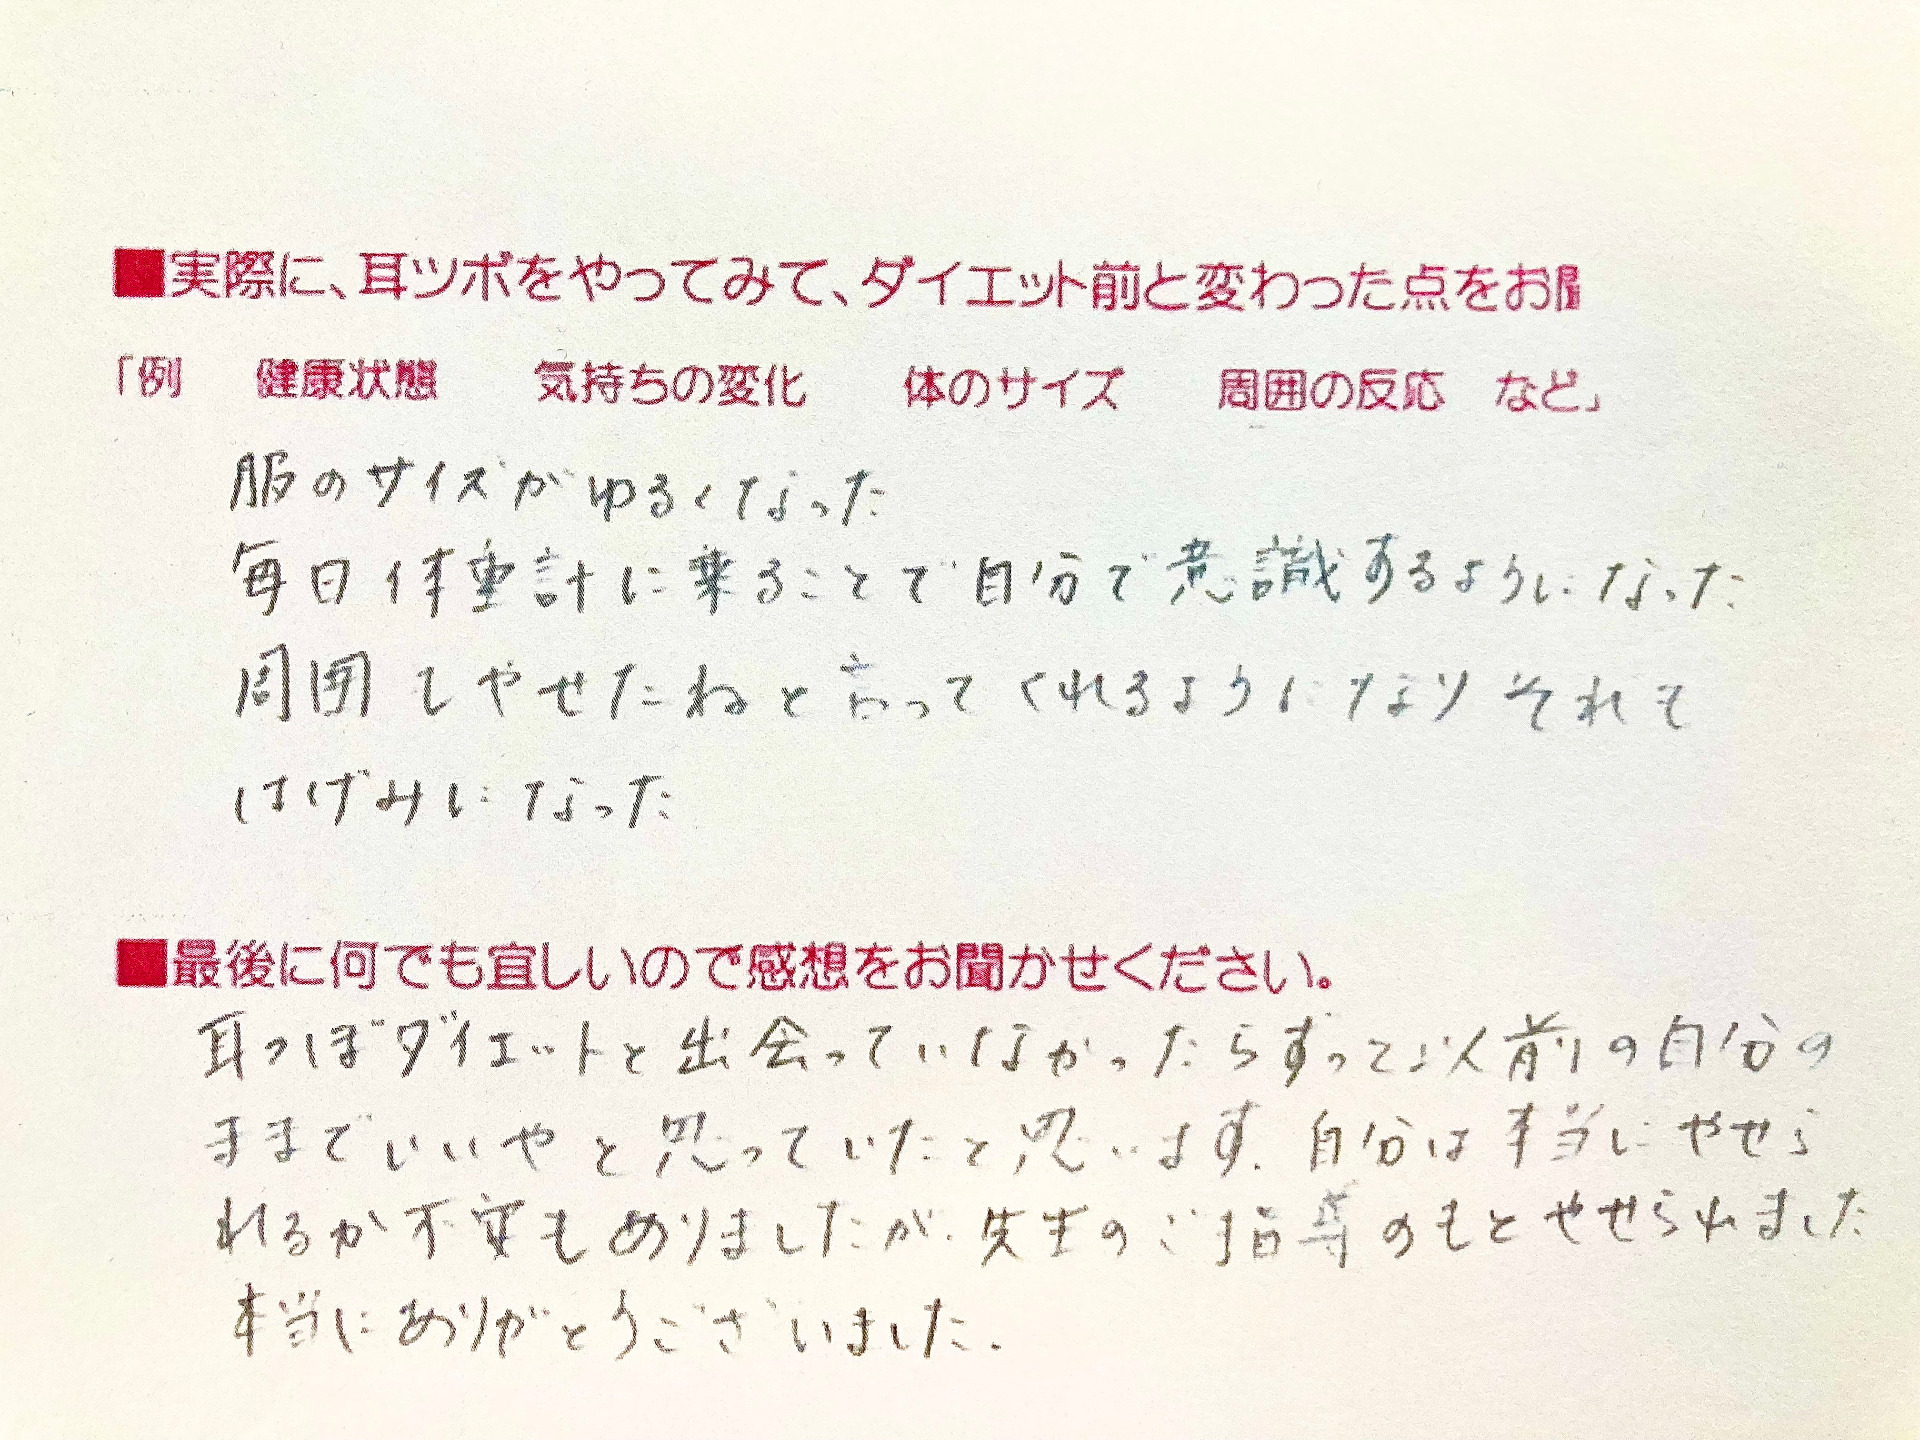 ■実際に、耳ツボをやってみて、ダイエット前と変わった点をお聞
「例 健康状態 気持ちの変化 体のサイズ 周囲の反応 など」
服のサイズがゆるくなった
毎日体重計に乗ることで自分で意識するようになった
周囲もやせたねと言ってくれるようになりそれも
はげみになった
■最後に何でも宜しいので感想をお聞かせください。
耳つぼダイエットと出会っていなかったらずっと以前の自分の
ままでいいやと思っていたと思います。自分は本当にやせら
れるか不安もありましたが、先生のご指導のもとやせられました
本当にありがとうございました。